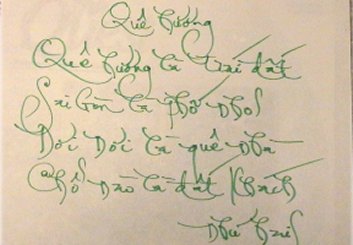 Quê hương
Quê hương là trái đất
Sài Gòn là phố nhỏ
Đời Đời là quê nhà
Chỗ nào là đất khách
Như